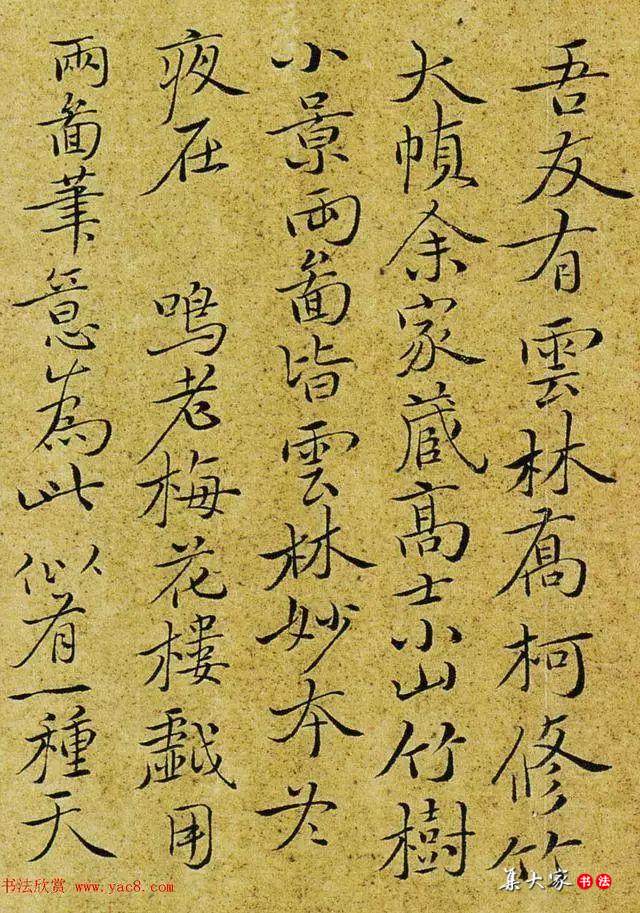 吾友有雲林喬柯修竹
大幀余家藏髙士小山竹樹
小景兩啚皆雲林妙本冬
夜在 鳴老梅花樓戲用
兩啚筆意為此似有一種天
书法欣赏 www.yac8.com
集大家 书法